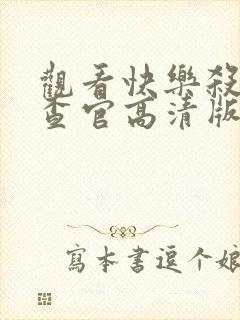 觀看快樂殺
查官高清版
寫本書逗个娘